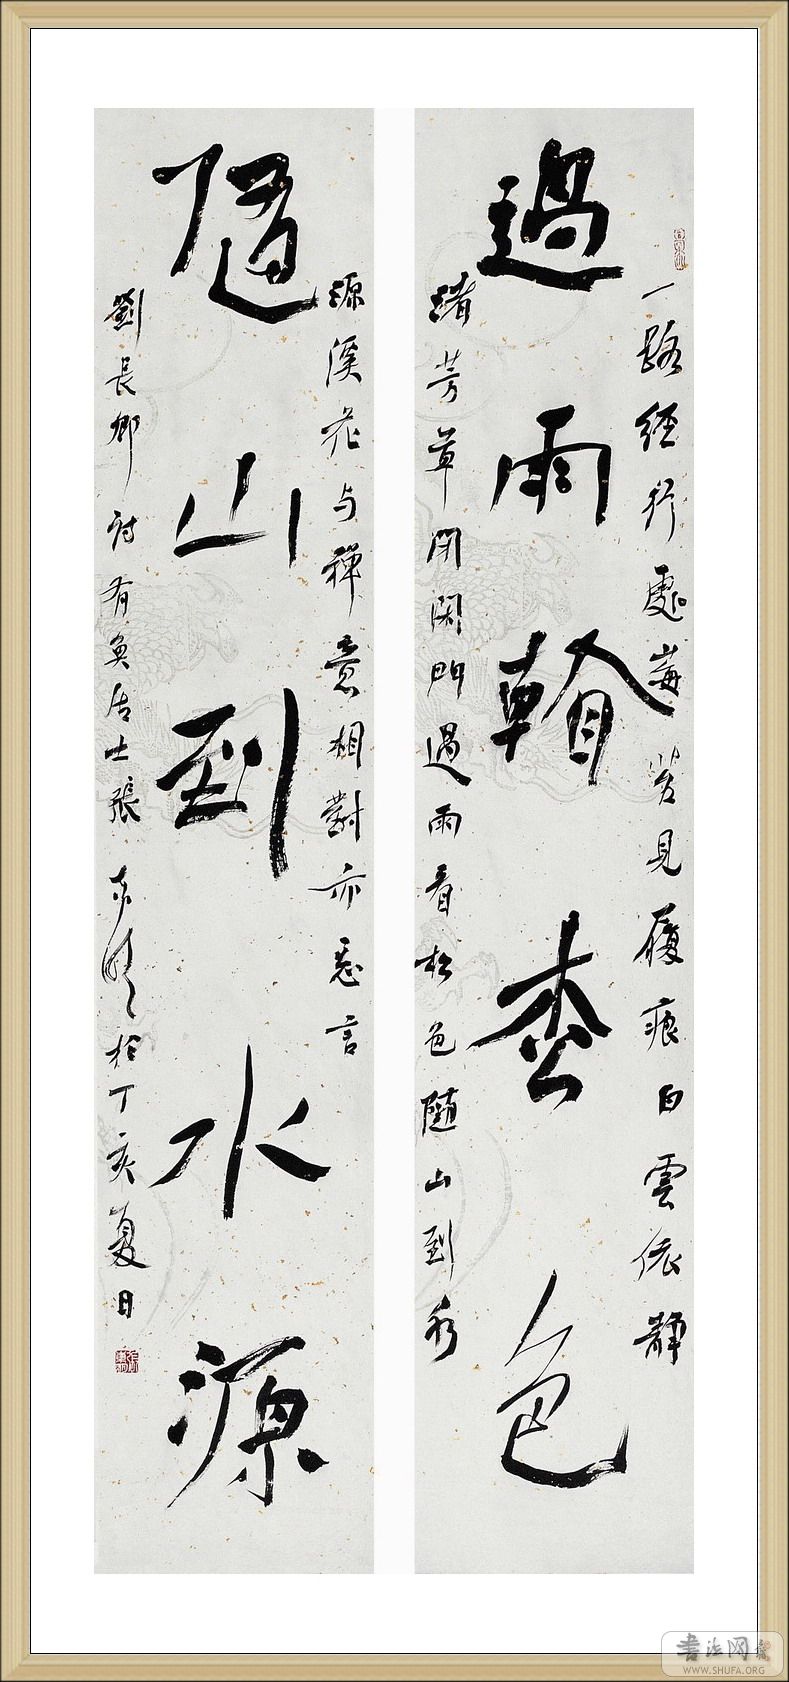 一路經行處莓苔見履痕白雲依靜
過雨看枩色
渚芳草閉閑門過雨看松色隨山到水
源溪花与禪意相對亦忘言
隨山到水源
劉長卿詩有奐居士張於丁亥夏日
书法网
WWW.SHUFA.ORG